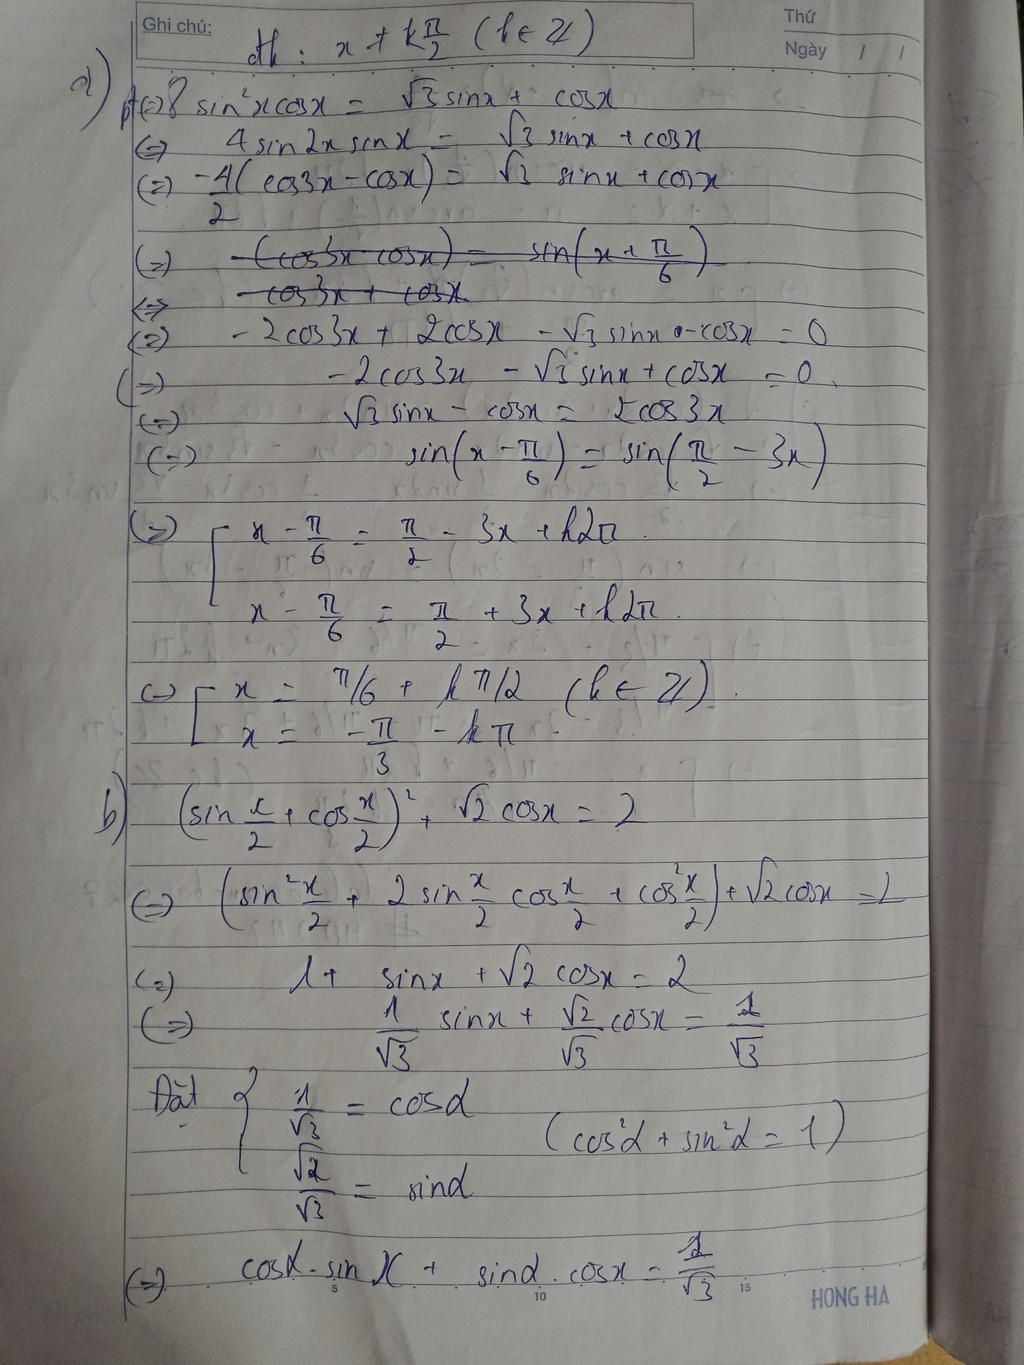 Ghi chú:
đk: x ≠ kπ/2 (k ∈ Z)
Thứ
Ngày / /
a) pt (=) 8 sin²x cosx = √3 sinx + cosx
(=) 4 sin2x sinx = √3 sinx + cosx
(=) -4/2 (cos3x - cosx) = √3 sinx + cosx
(=) -(cos3x - cosx) = sin(x + π/6)
<=> -cos3x + cosx
(=) -2cos3x + 2cosx - √3 sinx - cosx = 0
(=) -2cos3x - √3 sinx + cosx = 0
(=) √3 sinx - cosx = 2cos3x
(=) sin(x - π/6) = sin(π/2 - 3x)
(=) [ x - π/6 = π/2 - 3x + k2π
x - π/6 = π/2 + 3x + k2π
(=) [ x = π/6 + kπ/2 (k ∈ Z)
x = -π/3 - kπ
b) (sin x/2 + cos x/2)² + √2 cosx = 2
(=) (sin² x/2 + 2 sin x/2 cos x/2 + cos² x/2) + √2 cosx = 2
(=) 1 + sinx + √2 cosx = 2
(=) 1/√3 sinx + √2/√3 cosx = 1/√3
Đặt { 1/√3 = cosα
(cos²α + sin²α = 1)
√2/√3 = sinα
(=) cosα . sin x + sinα . cosx = 1/√3
5 10 15
HONG HA